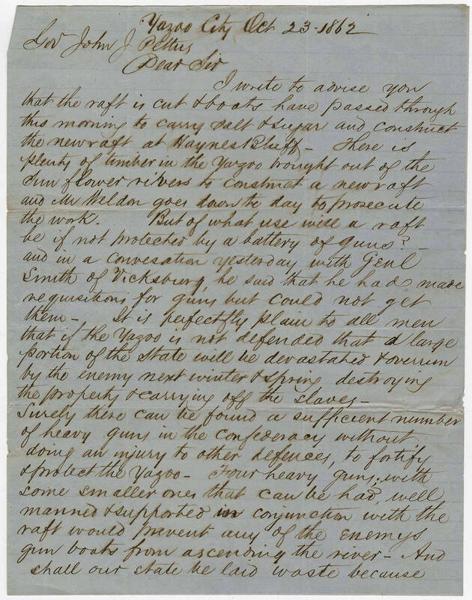 Yazoo City Oct 23 1862
Gov John J Pettus
Dear Sir
I write to advise you
that the raft is cut & boats have passed through
this morning to carry salt & sugar and construct
the new raft at Haynes Bluff - There is
plenty of timber in the Yazoo brought out of the
Sun flower rivers to construct a new raft
and Mr Weldon goes down to day to prosecute
the work. But of what use will a raft
be if not protected by a battery of guns? -
and in a convesation yesterday with Genl
Smith of Vicksburg, he said that he had made
requisitions for guns but could not get
them - It is perfectly plain to all men
that if the Yazoo is not defended that a large
portion of the State will be devastated & overrun
by the enemy next winter & spring destroying
the property & carrying off the slaves -
Surely there can be found a sufficient number
of heavy guns in the confederacy without
doing an injury to other defences, to fortify
& protect the Yazoo - Four heavy guns, with
some smaller ones that can be had well
manned & supported in conjunction with the
raft would prevent any of the enemys
gun boats from ascending the river - And
shall our state be laid waste because